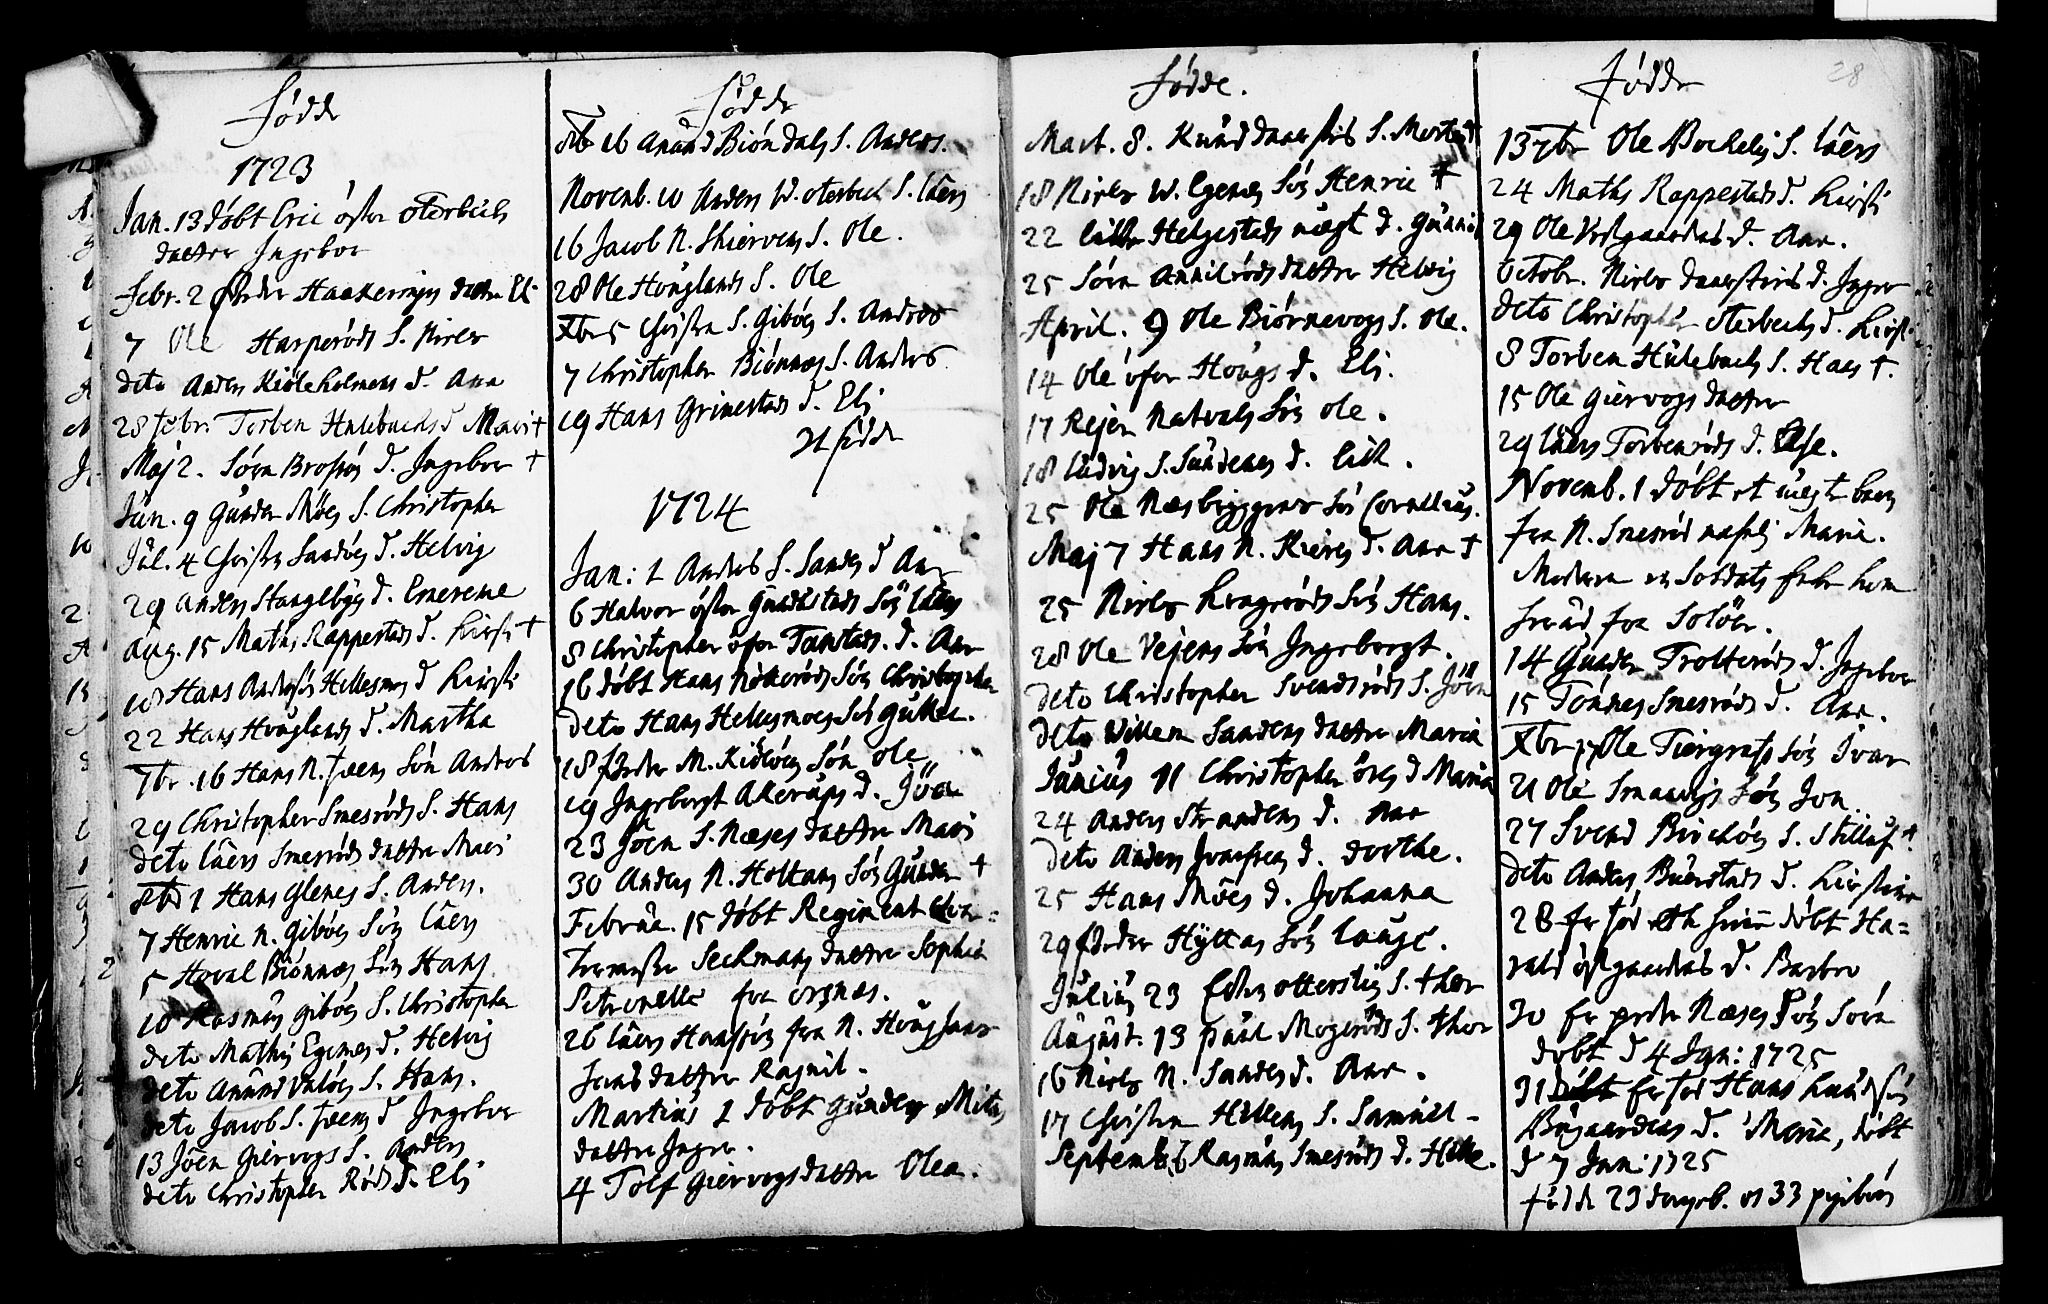 Födde
1723
Jan. 13 döbt Eric öfter oterbechs
datter Ingebor
Febr. 2 Peder Haakerøiys datter Eli
7 Ole Harperöds S. Niels
dito Anders Kiöleholmens d. Ann
28 Febr. Torben Hulebachs d Mari †
Maj 2. Sören Brofoss d. Ingebor †
Jun. 9 Gunder Möes S. Christopher
Jul. 4 Christen Sandöes d. Helvig
29 Anders Stanglebyes d. Emerense
Aug. 15 Maths Rappestads d. Kirsti †
18 Hans Anders Hellesmoes d Kirsti
22 Hans Houglands d. Martha
7br. 16 Hans N. foens Sön Anders
29 Christopher Smesröds S. Hans
deto Laers Smesröds datter Mari
8tbr 1 Hans Glenes S. Anders.
7 Henric N. Giböes Sön Laers
5 Hoval Biönnæs Sön Hans
10 Rasmus giböes S. Christopher
deto Mathis Egenes d. Helvig
deto Anund Valöes S. Hans.
deto Jacob S. foens d Ingebor
13 Jöen Giervogs S. Anders
deto Christopher Röds d. Eli
Födde
8tb 16 Anund Biöndals S. Anders.
Novemb. 10 Anders W. oterbech S. Laers
16 Jacob N. Skiervens S. Ole.
28 Ole Houglands S. Ole
Xbr 5 Christen S. Giböes S. Anders
7 Christopher Biönnæs S. Anders
19 Hans Grimestads d. Eli
24 födde
1724
Jan: 1 Anders S. Sandes d Ann
6 Halvor öster Gundestads Sön Laers
8 Christopher öfre Tanstads. d. Ann
16 döbt Hans Nökleröds Sön Christopher
deto Hans Hellesmoes Sön Gullic.
18 Peder M. Kiölöes Sön Ole
19 Ingeborgt Akerups d. Jöa
23 Jöen S. Næses datter Mari
30 Anders N. Holtans Sön Gunder †
Februa. 15 döbt Regiment Qvar=
teermester Seehmans datter Sophia
Petronelle fra örsnæs.
26 Laers Hansen fra N. Houg
datter Ragnil.
Martius 1 döbt Gunders Mils
datter Inger.
4 Tolf Giervogs datter Olea.
Födde.
Mart. 8. Knud daaestiis S. Morten †
18 Niels W. Egenes Sön Henric †
22 Helgestads uægt d. Gunnil
25 Sören Annilröds datter Helvig
April. 9 Ole Biörnevogs S. Ole.
14 Ole ofre Hougs d. Eli.
17 Rejer Natvals Sön Ole.
18 Ludvig S. Sundenes d. Eilk.
25 Ole Næsbryggenes Sön Cornelius.
Maj 7 Hans N. Kieres d. Ann †
25 Niels Krageröds Sön Hans.
28 Ole Vejens Sön Ingeborgt.
deto Christopher Svendsröds S. Jöen
deto Willem Sandens datter Maria
Junius 11 Christopher öres d Maria
24 Anders Strandens d. Ann
deto Anders d. dorthe.
25 Hans Möes d. Johanna
29 Peder Hyttas Sön Lauge.
Julius 23 Esten otterstis S. Thor
August. 13 paul Mogeröds S. Thor
16 Niels N. Sandes d. Ann.
17 Christen Hillens S. Samuel
Septemb. 6 Rasmus Smesröds d. Helle.
Födde
28
13 7br Ole Bockelies S. Laers
24 Maths Rappestads d. Kirsti
29 Ole Vestgaardens d. Ann.
Octobr. Niels daaestiis d. Inger
deto Christopher oterbechs d. Kirsti
8 Torben Hulebachs S. Hans †.
15 Ole Giervogs datter
29 Laers Torbenröds d. Else.
Novemb. 1 döbt et uægte barn
fra N. Smesröd nafnlig Maria.
Moderen en Soldats
fra Solöer.
14 Gunder Trolleröds d. Ingebor
15 Tönnes Smesröds d. Ann.
Xbr 17 Ole Tiergrafs Sön Ivar
21 Ole Smaavigs Sön Jon.
27 Svend Birchöes S. Stilluf †
deto Anders Buerstads d. Kirstine
28 er föd döbt Ha=
rald östgaardens d. Barbro
30 Er peder Næses Sön Sören
döbt d 4 Jan: 1725
31 er föd Hans Knudsön
Bügaardens d. Maria, döbt
d 7 Jan: 1725
födde 23 og 33 pigebörn